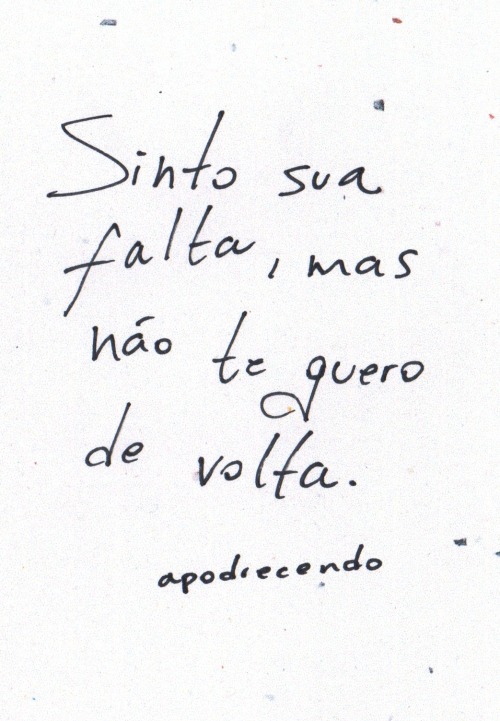 Sinto sua
falta, mas
não te quero
de volta.
apodrecendo